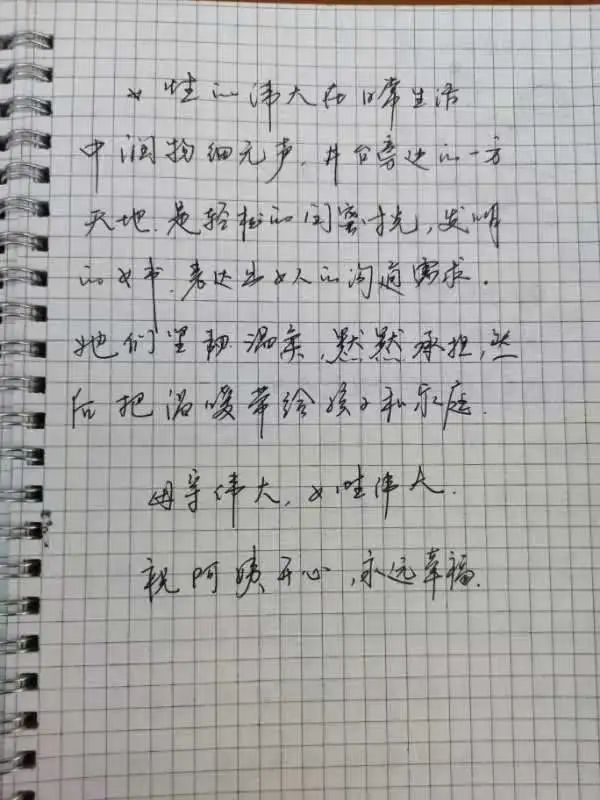 女性的伟大在日常生活
中润物细无声，井台旁边的一方
天地，是轻松的闺蜜时光，发明
的女书，表达出女人的沟通需求。
她们坚韧温柔，默默承担，然
后把温暖带给孩子和家庭。
母亲伟大，女性伟大。
祝阿姨开心，永远幸福。